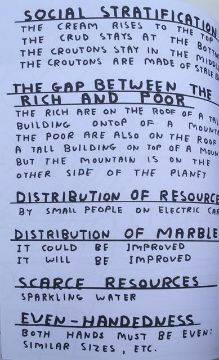 SOCIAL STRATIFICATION
THE CREAM RISES TO THE TOP
THE CRUD STAYS AT THE BOTTOM
THE CROUTONS STAY IN THE MIDDLE
THE CROUTONS ARE MADE OF STALE
THE GAP BETWEEN THE
RICH AND POOR
THE RICH ARE ON THE ROOF OF A TALL
BUILDING ONTOP OF A MOUNTAIN
THE POOR ARE ALSO ON THE ROOF
A TALL BUILDING ON TOP OF A MOUNTAIN
BUT THE MOUNTAIN IS ON THE
OTHER SIDE OF THE PLANET
DISTRIBUTION OF RESOURCE
BY SMALL PEOPLE ON ELECTRIC
DISTRIBUTION OF MARBLE
IT COULD BE IMPROVED
IT WILL BE IMPROVED
SCARCE RESOURCES
SPARKLING WATER
EVEN-HANDEDNESS
BOTH HANDS MUST BE EVEN:
SIMILAR SIZES, ETC.